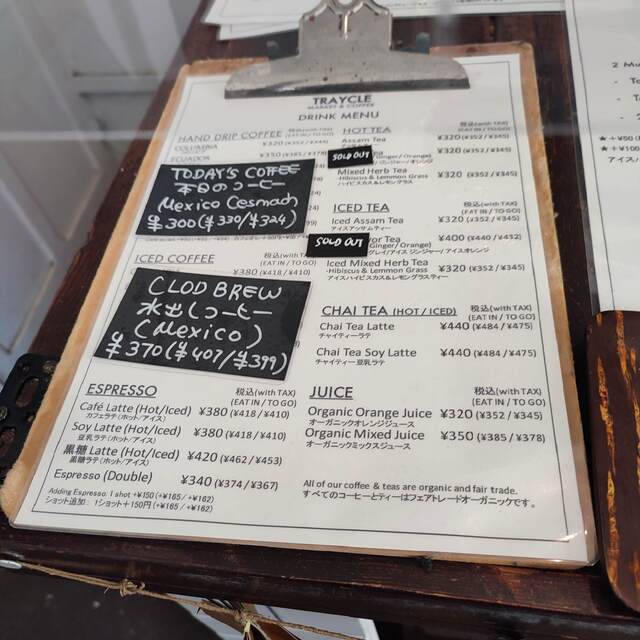 TRAYCLE
MARKET & COFFEE
DRINK MENU
HAND DRIP COFFEE
税込(with TAX)
(EAT IN / TO GO)
COLUMBIA
¥320 (¥352 / ¥345)
ECUADOR
¥350 (¥385 / ¥378)
TODAY'S COFFEE
本日のコーヒー
Mexico Cesmach
¥300(¥330/¥324)
ICED COFFEE
税込(with TAX)
(EAT IN / TO GO)
¥380 (¥418 / ¥410)
CLOD BREW
水出しコーヒー
(Mexico)
¥370(¥407/¥399)
ESPRESSO
税込(with TAX)
(EAT IN / TO GO)
Café Latte (Hot/Iced) ¥380 (¥418 / ¥410)
カフェラテ(ホット/アイス)
Soy Latte (Hot/Iced) ¥380 (¥418 / ¥410)
豆乳ラテ(ホット/アイス)
黒糖 Latte (Hot/Iced) ¥420 (¥462 / ¥453)
黒糖ラテ(ホット/アイス)
Espresso (Double) ¥340 (¥374 / ¥367)
Adding Espresso: 1 shot +¥150 (+¥165 / +¥162)
ショット追加: 1ショット+150円 (+¥165 / +¥162)
HOT TEA
税込(with TAX)
(EAT IN / TO GO)
Assam Tea
¥320 (¥352 / ¥345)
SOLD OUT
Ginger/ Orange)
Mixed Herb Tea
¥320 (¥352 / ¥345)
-Hibiscus & Lemmon Grass
ハイビスカス&レモングラス
ICED TEA
税込(with TAX)
(EAT IN / TO GO)
Iced Assam Tea ¥320 (¥352 / ¥345)
アイスアッサムティー
SOLD OUT
vor Tea ¥400 (¥440 / ¥432)
Ginger/ Orange)
グレイ/アイス ジンジャー/アイスオレンジ
Iced Mixed Herb Tea
-Hibiscus & Lemmon Grass ¥320 (¥352 / ¥345)
アイスハイビスカス&レモングラスティー
CHAI TEA (HOT / ICED)
税込(with TAX)
(EAT IN / TO GO)
Chai Tea Latte ¥440 (¥484 / ¥475)
チャイティーラテ
Chai Tea Soy Latte ¥440 (¥484 / ¥475)
チャイティー豆乳ラテ
JUICE
税込(with TAX)
(EAT IN / TO GO)
Organic Orange Juice ¥320 (¥352 / ¥345)
オーガニックオレンジジュース
Organic Mixed Juice ¥350 (¥385 / ¥378)
オーガニックミックスジュース
All of our coffee & teas are organic and fair trade.
すべてのコーヒーとティーはフェアトレードオーガニックです。
2 Mu